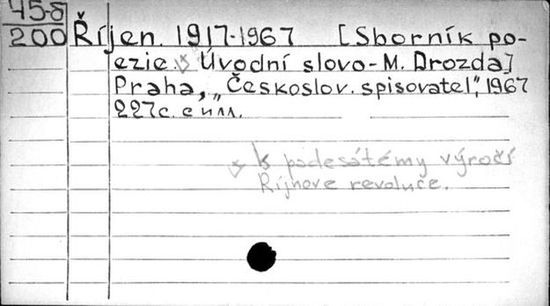 45-8
200 Říjen. 1917-1967 [Sborník po-
ezie. Úvodní slovo - M. Drozda]
Praha, „Českoslov. spisovatel", 1967
227c. с илл.
K padesátému výročí
Říjnove revoluče.